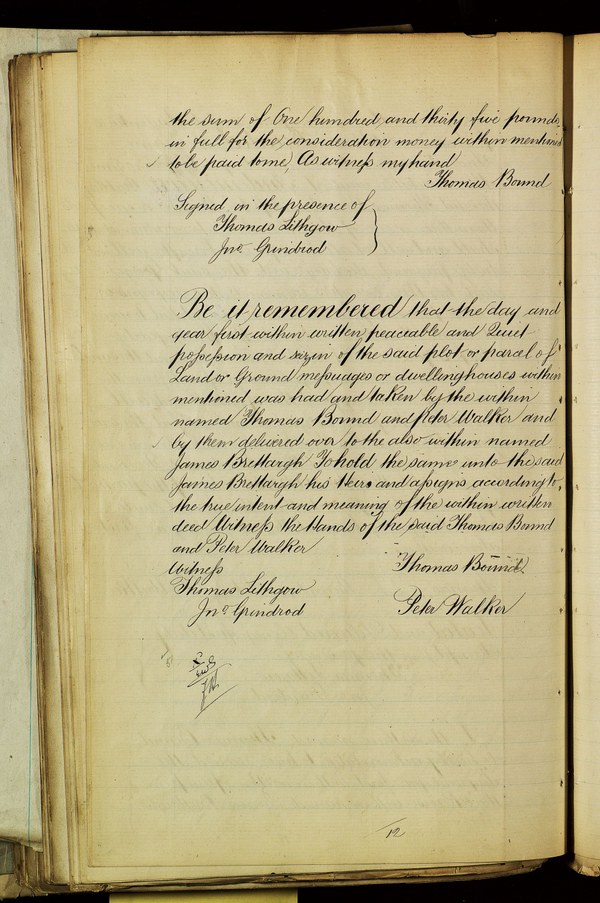 the sum of One hundred and thirty five pounds
in full for the consideration money within mentioned
to be paid to me, As witness my hand
Thomas Bound
Signed in the presence of
Thomas Lithgow
Jno. Grindrod
Be it remembered that the day and
year first within written peaceable and Quiet
possession and sizin of the said plot or parcel of
Land or Ground messuages or dwellinghouses within
mentioned was had and taken by the within
named Thomas Bound and peter Walker and
by them delivered over to the also within named
James Brettargh To hold the same unto the said
James Brettargh his Heirs and assigns according to
the true intent and meaning of the within written
deed Witness the Hands of the said Thomas Bound
and Peter Walker
Witness
Thomas Bound
Thomas Lithgow
Jno. Grindrod
Peter Walker
12